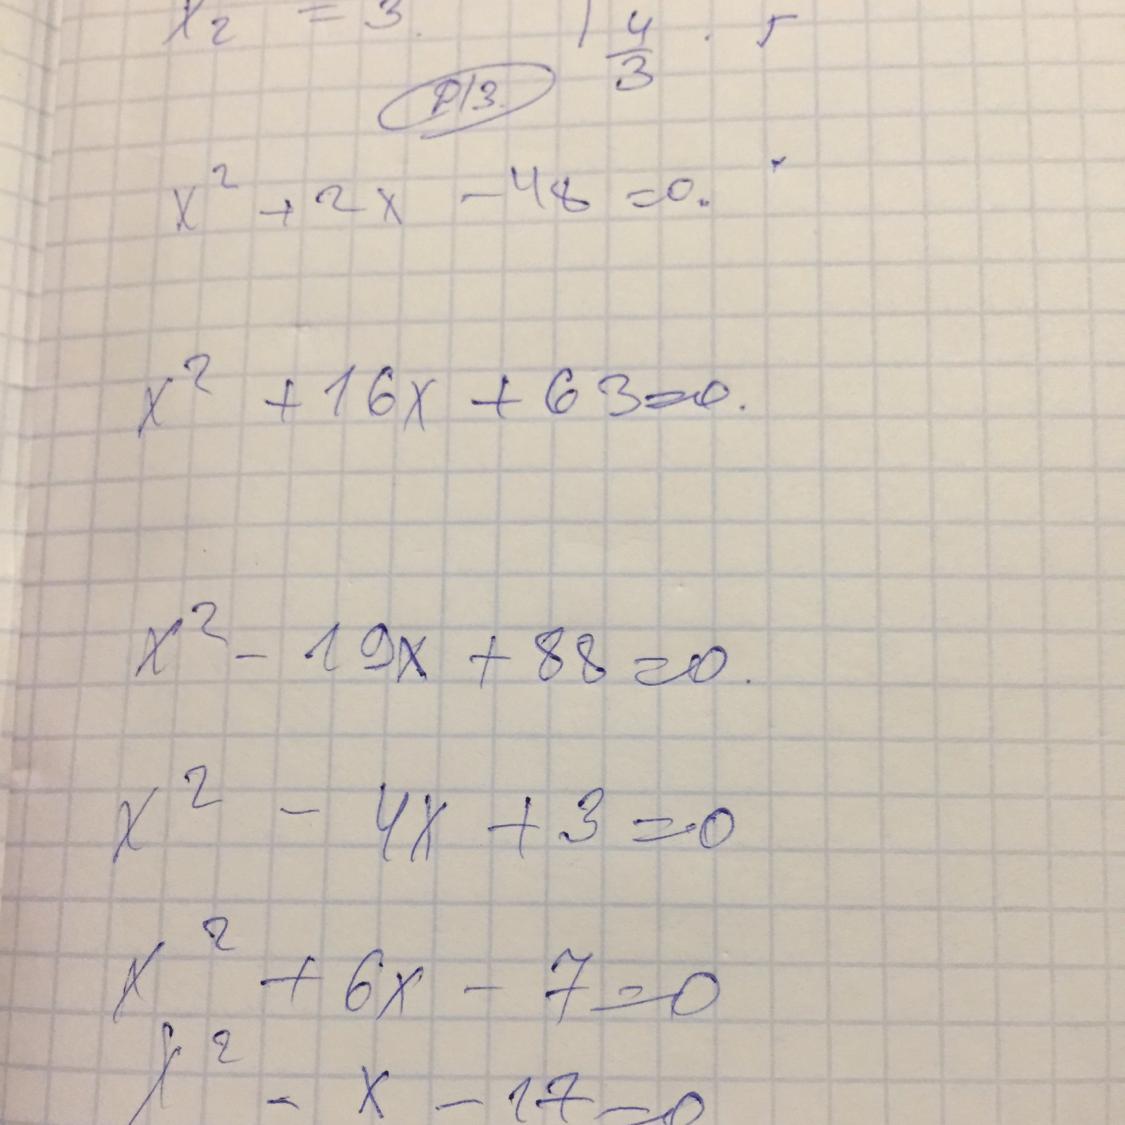 x₂ = 3.
4/3 · 5
Д/З.
x² + 2x - 48 = 0.
x² + 16x + 63 = 0.
x² - 19x + 88 = 0.
x² - 4x + 3 = 0
x² + 6x - 7 = 0
x² - x - 17 = 0